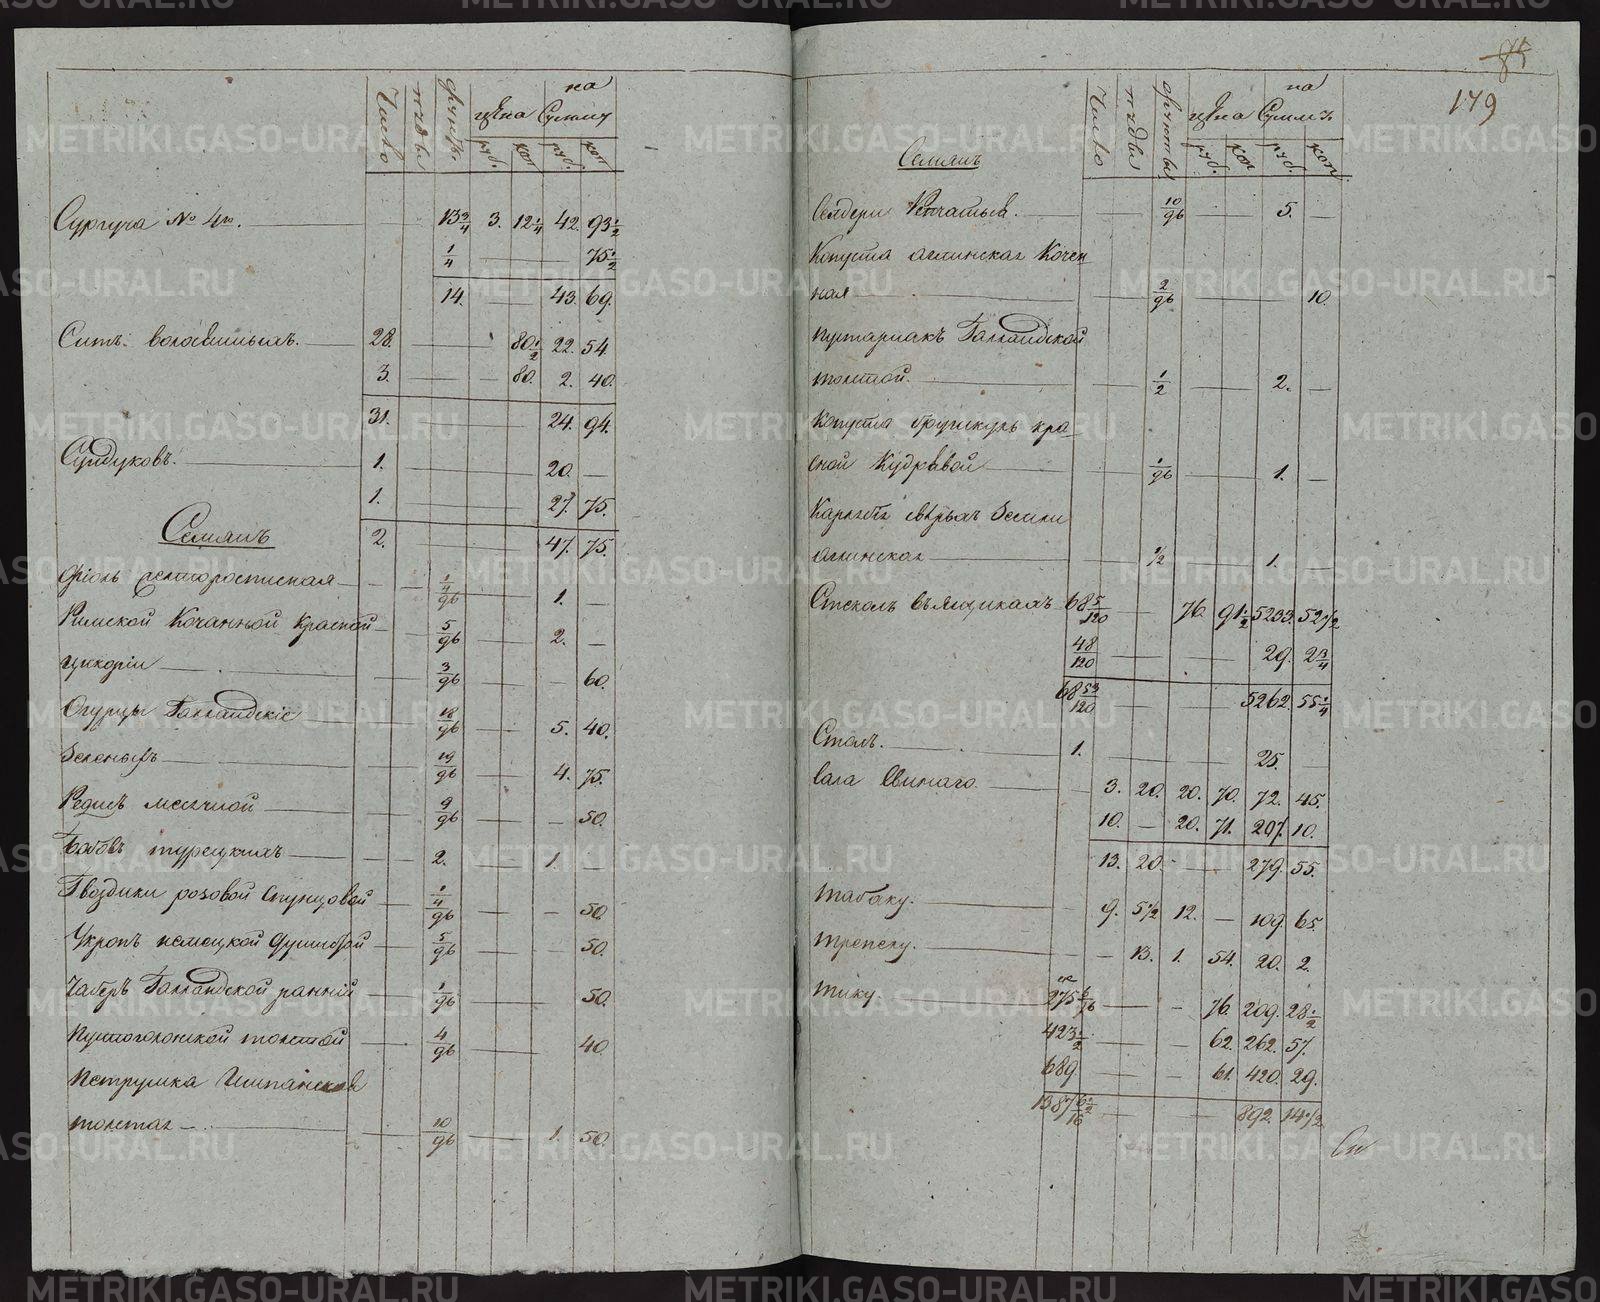 Число пуды фунты. цена на Сумму
руб. коп руб. коп
Сургуча № 4го. 13 3/4 3. 12 1/4 42. 93 1/2
1/4 75 1/2
14. 43. 69.
Ситъ волосяныхъ. 28. 80 1/2 22. 54
3. 80. 2. 40.
31. 24. 94.
Сундуковъ. 1. 20. —
1. 27. 75.
Семянъ 2. 47. 75.
1/4/96 1. —
Римской Кочанной Красной 5/96 2. —
цикоріи 3/96 — 60.
Огурцы Галландскіе 18/96 5. 40.
Зеленыхъ 19/96 4. 75.
Редисъ месячной 9/96 — 50.
Бобовъ турецкихъ 2. 1. —
Гвоздики розовой Пунцовой 1/4/96 — 50.
Укропъ немецкой Душистой 5/96 — 50.
Чаберъ Галландской ранній 1/96 50.
толстой 4/96 40
Петрушка Гишпанская
толстая 10/96 1. 50.
85
179
Число пуды фунты цена на Сумму
руб. коп руб. коп.
Семянъ
Селдери 10/96 5. —
Капуста аглинская Кочен
ная 2/96 10.
Пустарнакъ Галландской
толстой. 1/2 2. —
Капуста брунколь кра
сной Кудрявой 1/96 1. —
аглинская 1/2 1. —
Стеколъ въ ящикахъ 68 5/120 76. 91 1/2 5233. 52 1/2
48/120 29. 2 3/4
68 53/120 5262. 55 1/4
Столъ. 1. 25.
Сала Свинаго. 3. 20. 20. 70. 72. 45.
10. — 20. 71. 207. 10.
13. 20. 279. 55.
Табаку. 9. 5 1/2 12. — 109. 65.
Трепелу. 13. 1. 54. 20. 2.
Тику 275 6/16 76. 209. 28 1/2
423 1/2 62. 262. 57.
689. 61. 420. 29.
1387 892. 14 1/2
METRIKI.GASO-URAL.RU